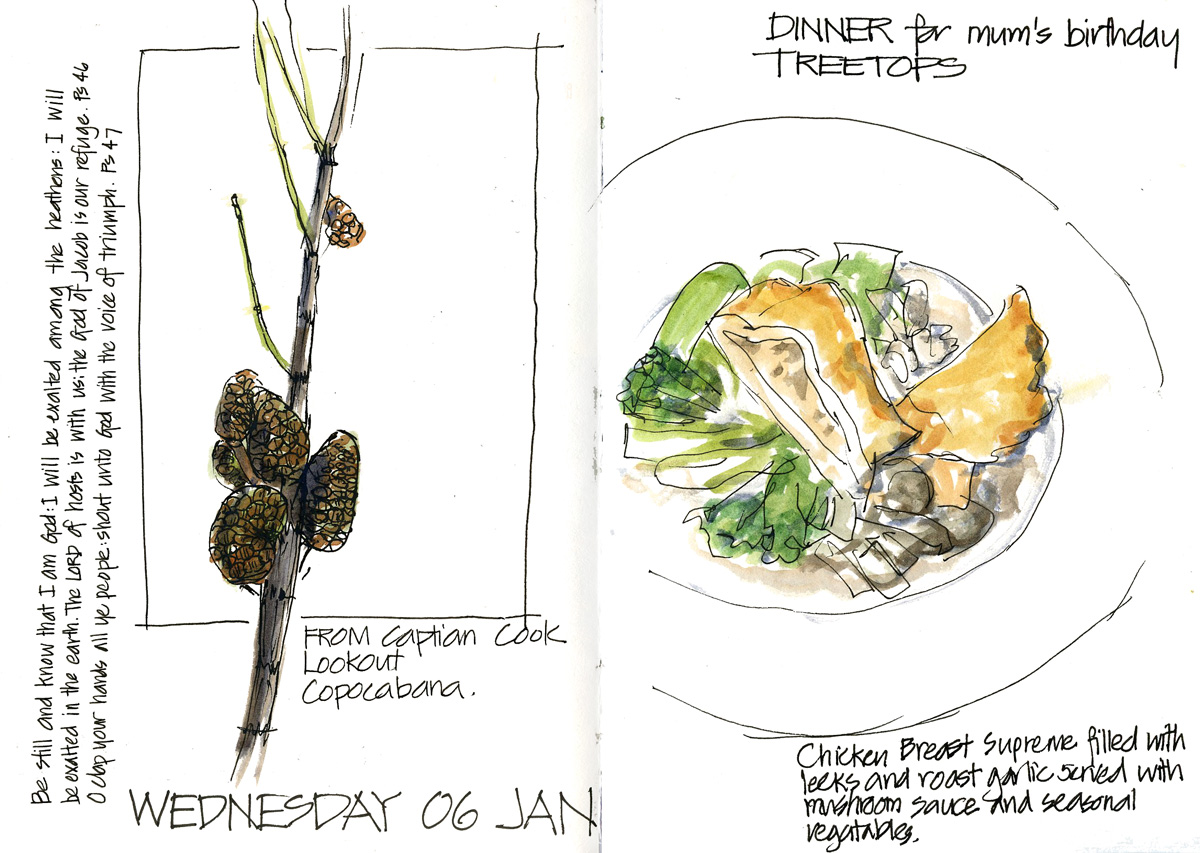 Be still and know that I am God: I will be exalted among the heathens: I will
be exalted in the earth. The LORD of hosts is with us: the God of Jacob is our refuge. Ps 46
O clap your hands all ye people: shout unto God with the voice of triumph. Ps 47
FROM Captian Cook
Lookout
Copocabana.
WEDNESDAY 06 JAN
DINNER for mum's birthday
TREETOPS
Chicken Breast Supreme filled with
leeks and roast garlic served with
mushroom sauce and seasonal
vegatables.